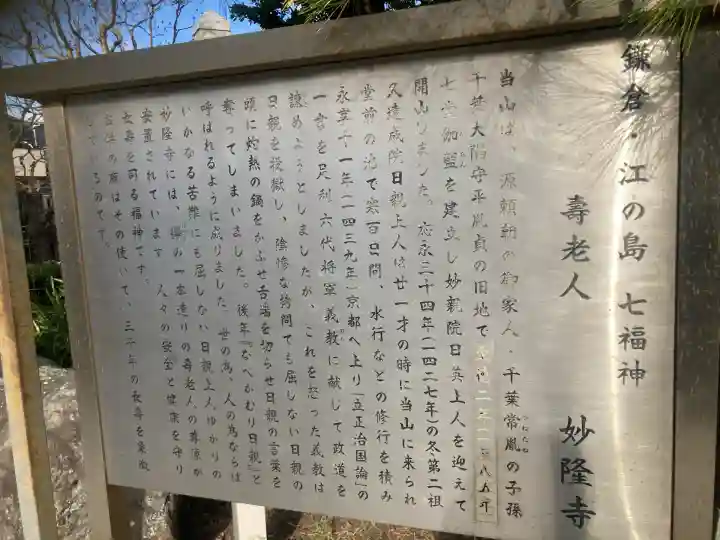 鎌倉・江の島 七福神
壽老人 妙隆寺
当山は、源頼朝の御家人・千葉常胤の子孫
つねたね
千葉大隅守平胤貞の旧地で
七堂伽藍を建立し妙親院日英上人を迎えて
開山しました。応永三十四年(一四二七年)の冬第二祖
久遠成院日親上人は廿一才の時に当山に来られ
堂前の池で寒百日間、水行などの修行を積み
永享十一年(一四三九年)京都へ上り「立正治国論」の
一書を足利六代将軍義教に献じて政道を
諌めようとしましたが、これを怒った義教は
日親を投獄し、陰惨な拷問でも屈しない日親の
頭に灼熱の鍋をかぶせ舌端を切らせ日親の言葉を
奪ってしまいました。後年『なべかむり日親』と
呼ばれるように成りました。世の為、人の為ならば
いかなる苦難にも屈しない日親上人ゆかりの
妙隆寺には、欅の一本造りの壽老人の尊像が
安置されています。人々の安全と健康を守り
長寿を司る福神です。
の鹿はその使いで、三千年の長寿を象徴
しているのです。